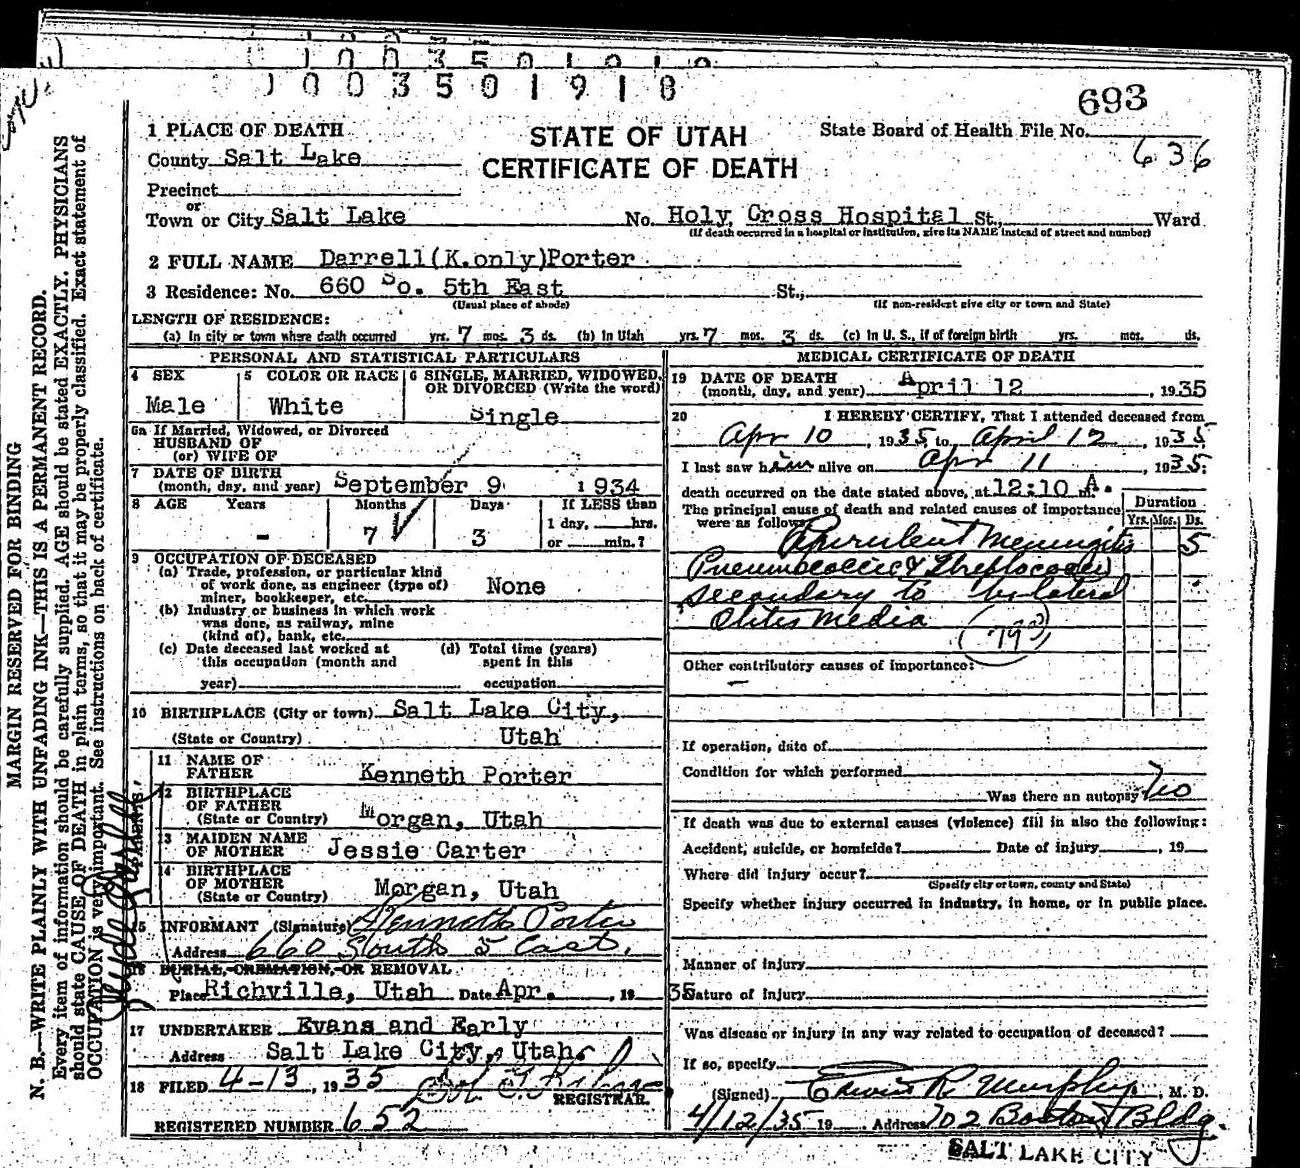 1003501918
1003501918
693
1 PLACE OF DEATH
STATE OF UTAH
CERTIFICATE OF DEATH
State Board of Health File No.
636
County Salt Lake
Precinct
or
Town or City Salt Lake No. Holy Cross Hospital St., Ward
(If death occurred in a hospital or institution, give its NAME instead of street and number)
2 FULL NAME Darrell (K.only) Porter
3 Residence: No. 660 So. 5th East St.,
(Usual place of abode) (If non-resident give city or town and State)
LENGTH OF RESIDENCE:
(a) In city or town where death occurred yrs. 7 mos. 3 ds. (b) In Utah yrs. 7 mos. 3 ds. (c) In U. S., if of foreign birth yrs. mos. ds.
PERSONAL AND STATISTICAL PARTICULARS
4 SEX
Male
5 COLOR OR RACE
White
6 SINGLE, MARRIED, WIDOWED,
OR DIVORCED (Write the word)
Single
6a If Married, Widowed, or Divorced
HUSBAND OF
(or) WIFE OF
7 DATE OF BIRTH
(month, day, and year) September 9 1934
8 AGE Years Months Days If LESS than
1 day, hrs.
- 7 3 or min.?
9 OCCUPATION OF DECEASED
(a) Trade, profession, or particular kind
of work done, as engineer (type of)
miner, bookkeeper, etc. None
(b) Industry or business in which work
was done, as railway, mine
(kind of), bank, etc.
(c) Date deceased last worked at
this occupation (month and
year)
(d) Total time (years)
spent in this
occupation
10 BIRTHPLACE (City or town) Salt Lake City,
(State or Country) Utah
PARENTS
11 NAME OF
FATHER Kenneth Porter
12 BIRTHPLACE
OF FATHER
(State or Country) Morgan, Utah
13 MAIDEN NAME
OF MOTHER Jessie Carter
14 BIRTHPLACE
OF MOTHER
(State or Country) Morgan, Utah
15 INFORMANT (Signature) Kenneth Porter
Address 660 South 5 East.
16 BURIAL, CREMATION, OR REMOVAL
Place Richville, Utah Date Apr. , 19 35
17 UNDERTAKER Evans and Early
Address Salt Lake City, Utah.
18 FILED 4-13, 1935
REGISTRAR.
REGISTERED NUMBER 652
MEDICAL CERTIFICATE OF DEATH
19 DATE OF DEATH
(month, day, and year) April 12 , 1935
20 I HEREBY CERTIFY, That I attended deceased from
Apr 10 , 1935, to April 12 , 1935
I last saw him alive on Apr 11 , 1935;
death occurred on the date stated above, at 12:10 A. m.
The principal cause of death and related causes of importance
were as follows:
Duration
Yrs. Mos. Ds.
Purulent Meningitis 5
Pneumococcic & Streptococcic
secondary to bilateral
Otitis Media
Other contributory causes of importance:
-
If operation, date of
Condition for which performed
Was there an autopsy? No
If death was due to external causes (violence) fill in also the following:
Accident, suicide, or homicide? Date of injury , 19
Where did injury occur?
(Specify city or town, county and State)
Specify whether injury occurred in industry, in home, or in public place.
Manner of injury
Nature of injury
Was disease or injury in any way related to occupation of deceased?
If so, specify
(Signed) Edwin R. Murphy , M. D.
4/12/35 19 Address 702 Boston Bldg.
SALT LAKE CITY
MARGIN RESERVED FOR BINDING
N. B.—WRITE PLAINLY WITH UNFADING INK—THIS IS A PERMANENT RECORD.
Every item of information should be carefully supplied. AGE should be stated EXACTLY. PHYSICIANS
should state CAUSE OF DEATH in plain terms, so that it may be properly classified. Exact statement of
OCCUPATION is very important. See instructions on back of certificate.